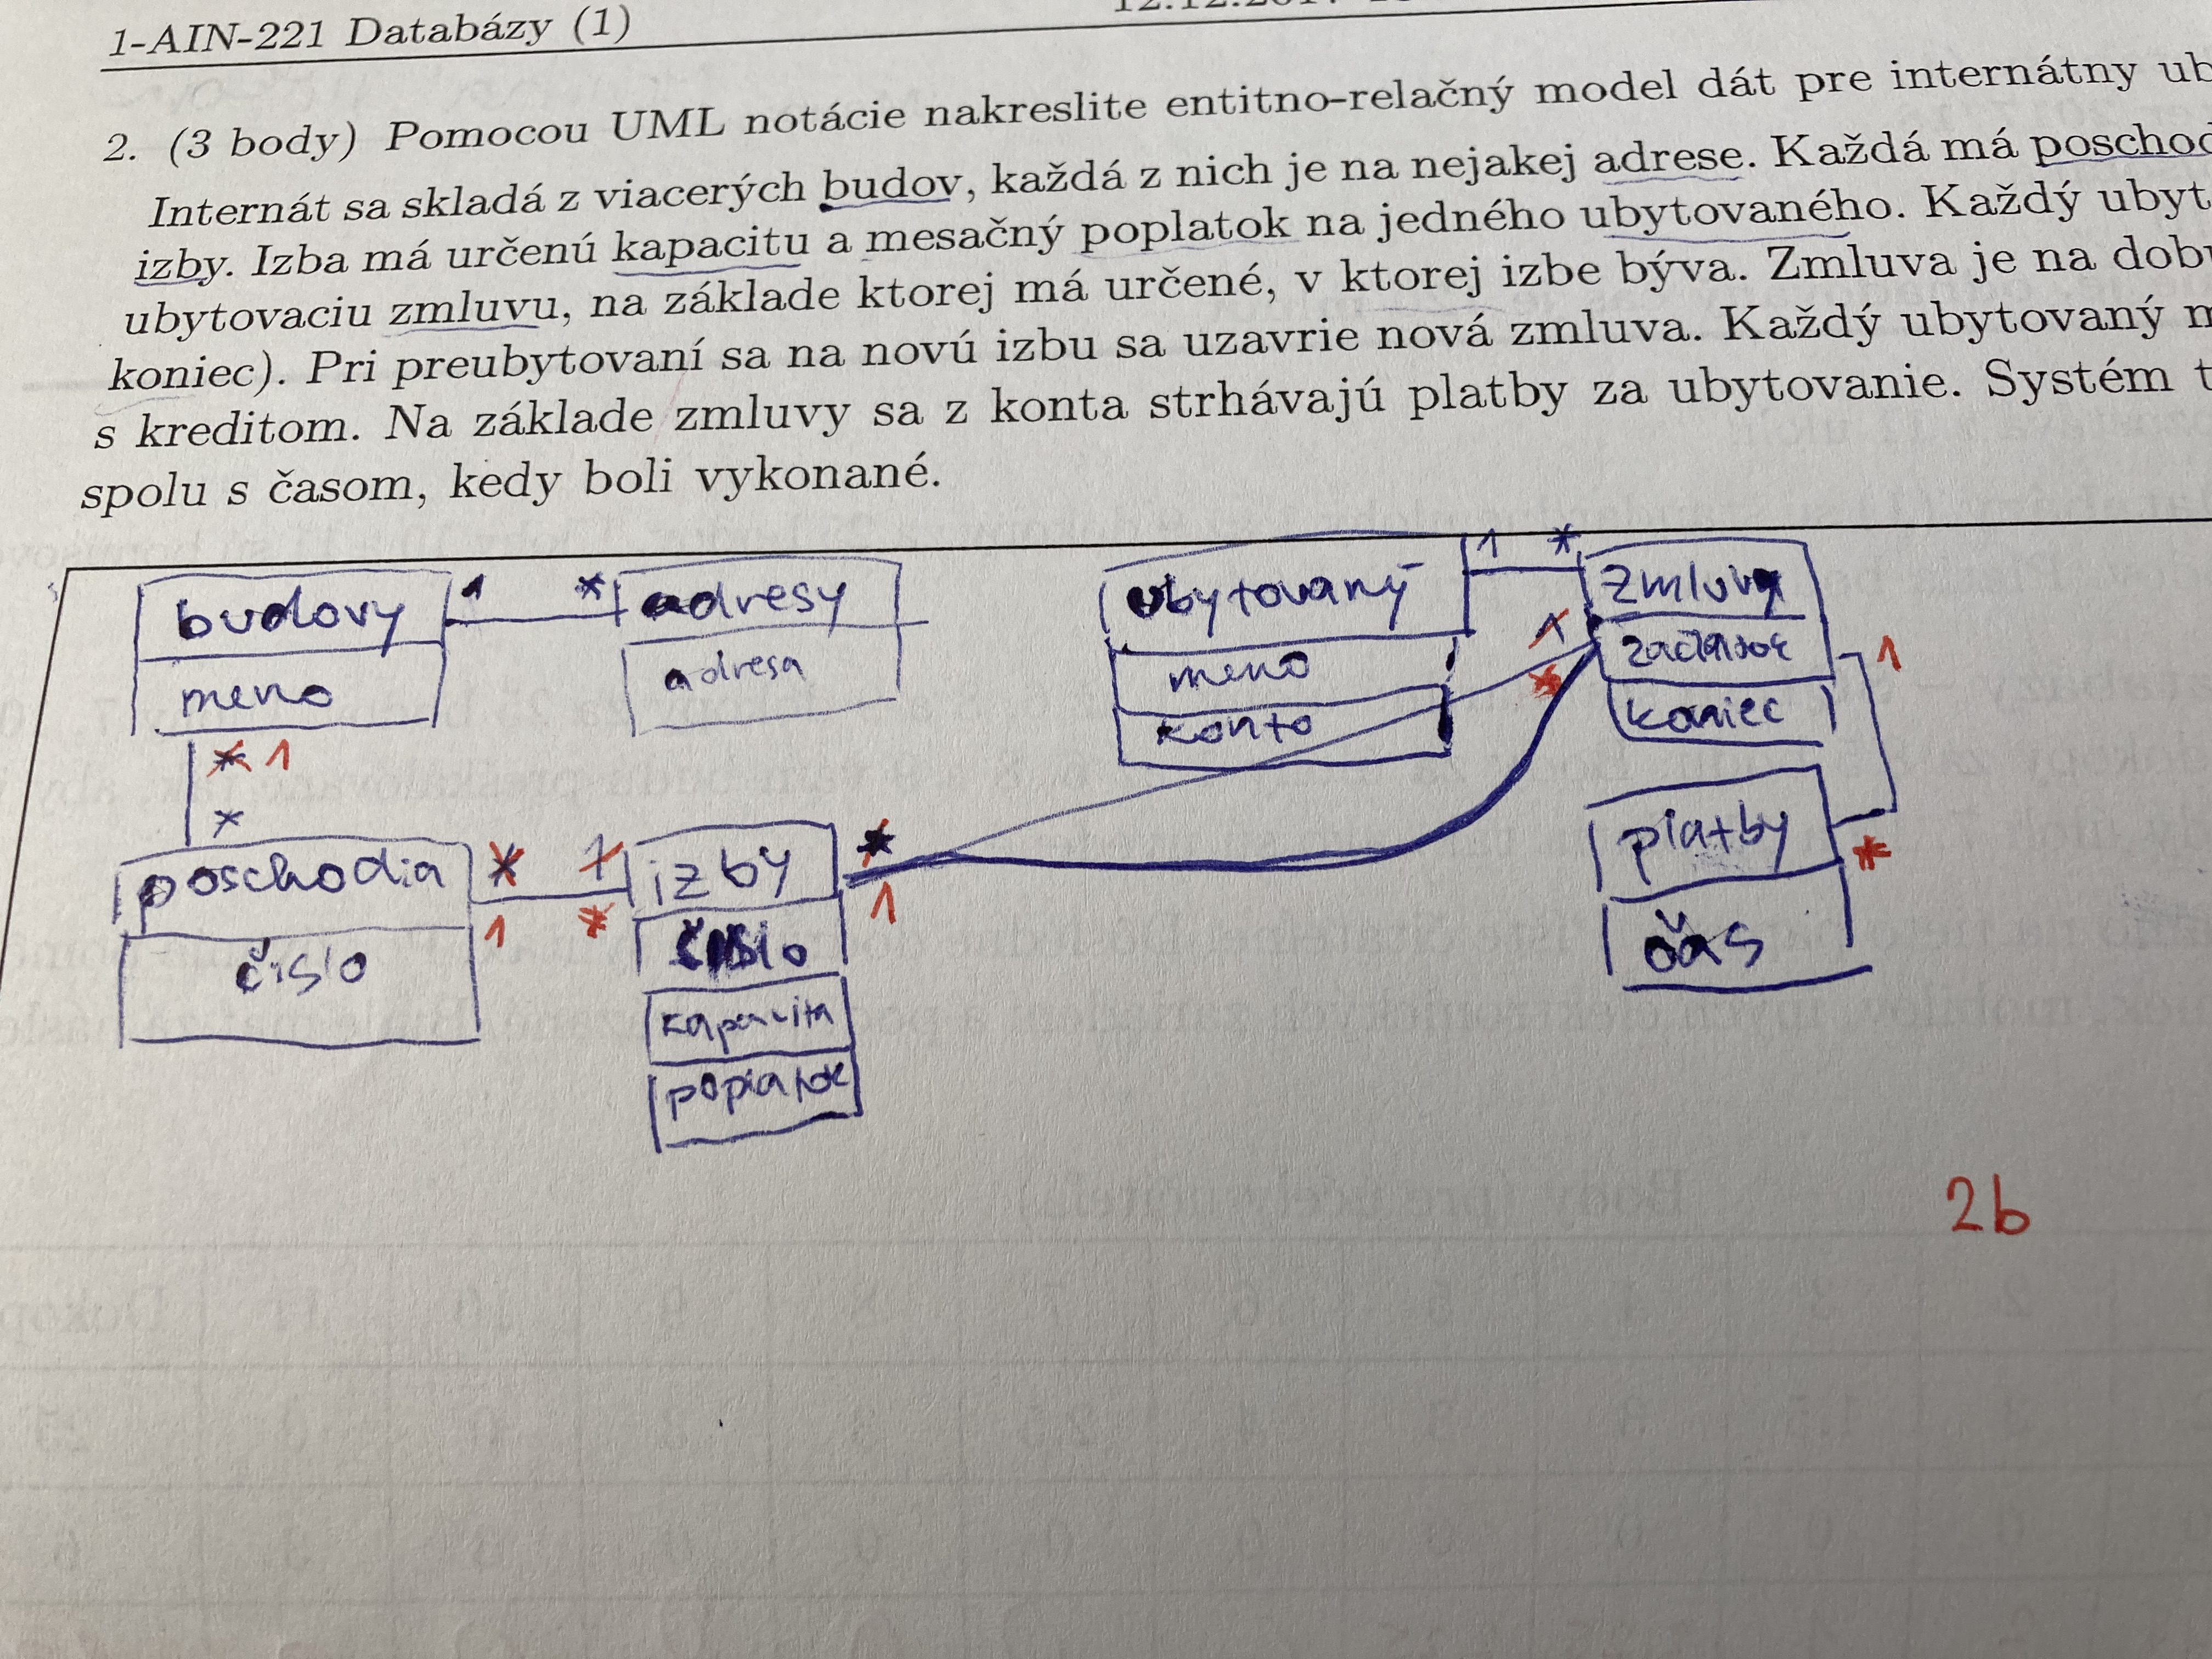 1-AIN-221 Databázy (1)
2. (3 body) Pomocou UML notácie nakreslite entitno-relačný model dát pre internátny
Internát sa skladá z viacerých budov, každá z nich je na nejakej adrese. Každá má poschod
izby. Izba má určenú kapacitu a mesačný poplatok na jedného ubytovaného. Každý ubyt
ubytovaciu zmluvu, na základe ktorej má určené, v ktorej izbe býva. Zmluva je na dob
koniec). Pri preubytovaní sa na novú izbu sa uzavrie nová zmluva. Každý ubytovaný
s kreditom. Na základe zmluvy sa z konta strhávajú platby za ubytovanie. Systém
spolu s časom, kedy boli vykonané.
budovy 1 * adresy
meno adresa
* 1
*
ubytovaný 1 * zmluva
meno 1 * začiatok 1
konto koniec
poschodia * 1 izby *
1 * 1
číslo číslo
kapacita
poplatok
platby *
čas
2b